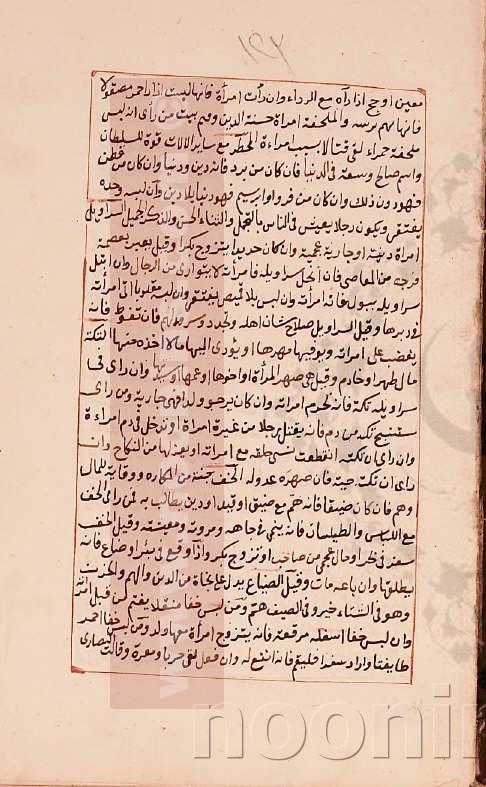 ١٩٢
معين او حج اذا رآه مع الرداء وان رأت امرأة فانها لبست ازارا حمر مصقولا
فانها تهم بريبة والملحفة امراة حسنة الدين وقيم بيت من رأى انه لبس
ملحفة حمراء لقى قتالا بسبب امراة مع ساير الالات قوة للسلطان
واسم صالح وسعة فى الدنيا فان كان من برد فانه دين ودنيا وان كان من قطن
فهو دون ذلك وان كان من قز او ابريسم فهو دنيا بلا دين وان لبسه وحده
يفتقر ويكون رجلا يعيش فى الناس بالتجمل والثناء الحسن والذكر الجميل السراويل
امراة دينة او جارية عجمية وان كان جديدا يتزوج بكرا وقيل يعبر بعصمة
فرجه من المعاصى فان انحل سراويله فامرأته لا يتوارى من الرجال وان
سراويله ببول فانه امرأته وان لبس بلا قميص يفتقر وان لبسه مقلوبا اتى امرأته
فى دبرها وقيل السراويل صلاح شان اهله وتجدد وسرور لهم فان تغوط فانه
يغضب على امراته ويوفيها مهرها او يؤدى اليها مالا اخذه منها التكة
مال ظهر او خادم وقيل هى صهر المرأة او اخوها او عمها وان راى فى
سراويله تكة فانه تحرم امراته وان كان يرجو ولدا فهى جارية ومن راى
تكة من دم فانه يقتل رجلا من غيرة امراة او يدخل فى دم امراءة
وان راى ان تكته انقطعت نسى خلقه مع امراته او يعزلها من النكاح وان
راى ان تكته حية فان صهره عدو له الخف جنة من المكاره ووقاية للمال
وهم فان كان ضيقا فانه هم مع ضيق او قيد او دين يطالب به لمن راى الخف
مع اللباس والطيلسان فانه ينمى فى جاهه ومروته ومعيشته وقيل الخف
سفر فى بحر او مال عجمى من صاحبه او تزوج بكر واذا وقع فى بئر او ضاع فانه
يطلقها وان باعه مات وقيل الضياع يدل على نجاة من الدين والهم والحزن
وهو فى الشتاء خير وفى الصيف هم ومن لبس خفا منقلا يغتم من قبل
وان لبس خفا اسفله مرقعة فانه يتزوج امراة معها ولد ومن لبس خفا احمر
واراد سفرا فليقم فانه انفع له وان فعل لقى حربا ومعرة وقالت النصارى
noonin